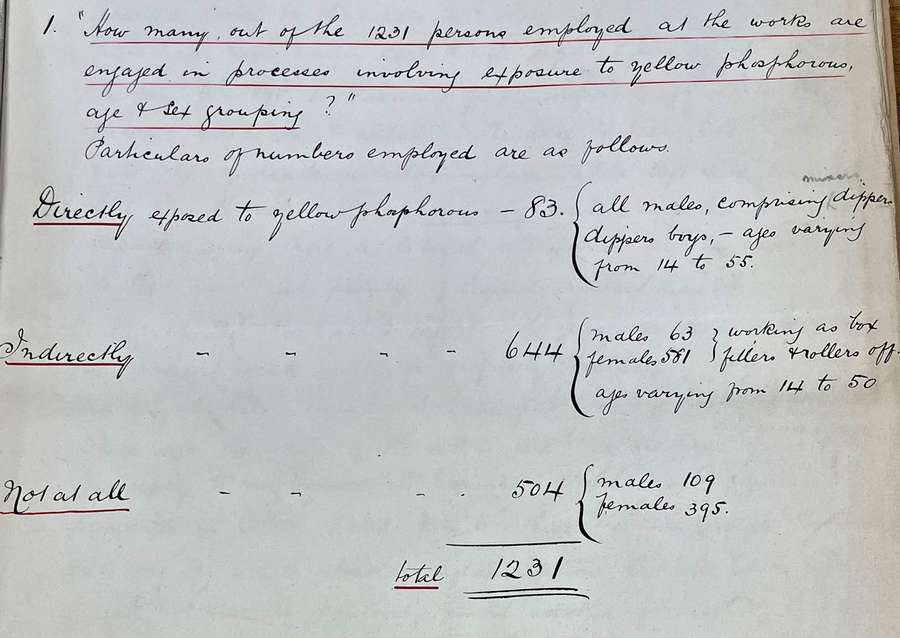 1. "How many, out of the 1231 persons employed at the works are
engaged in processes involving exposure to yellow phosphorous,
age & sex grouping?"
Particulars of numbers employed are as follows.
Directly exposed to yellow phosphorous - 83. { all males, comprising mixers dippers
dippers boys, - ages varying
from 14 to 55.
Indirectly - - - - 644 { males 63 } working as box
females 581 } fillers & rollers off.
ages varying from 14 to 50
Not at all - - - . 504 { males 109
females 395.
total 1231